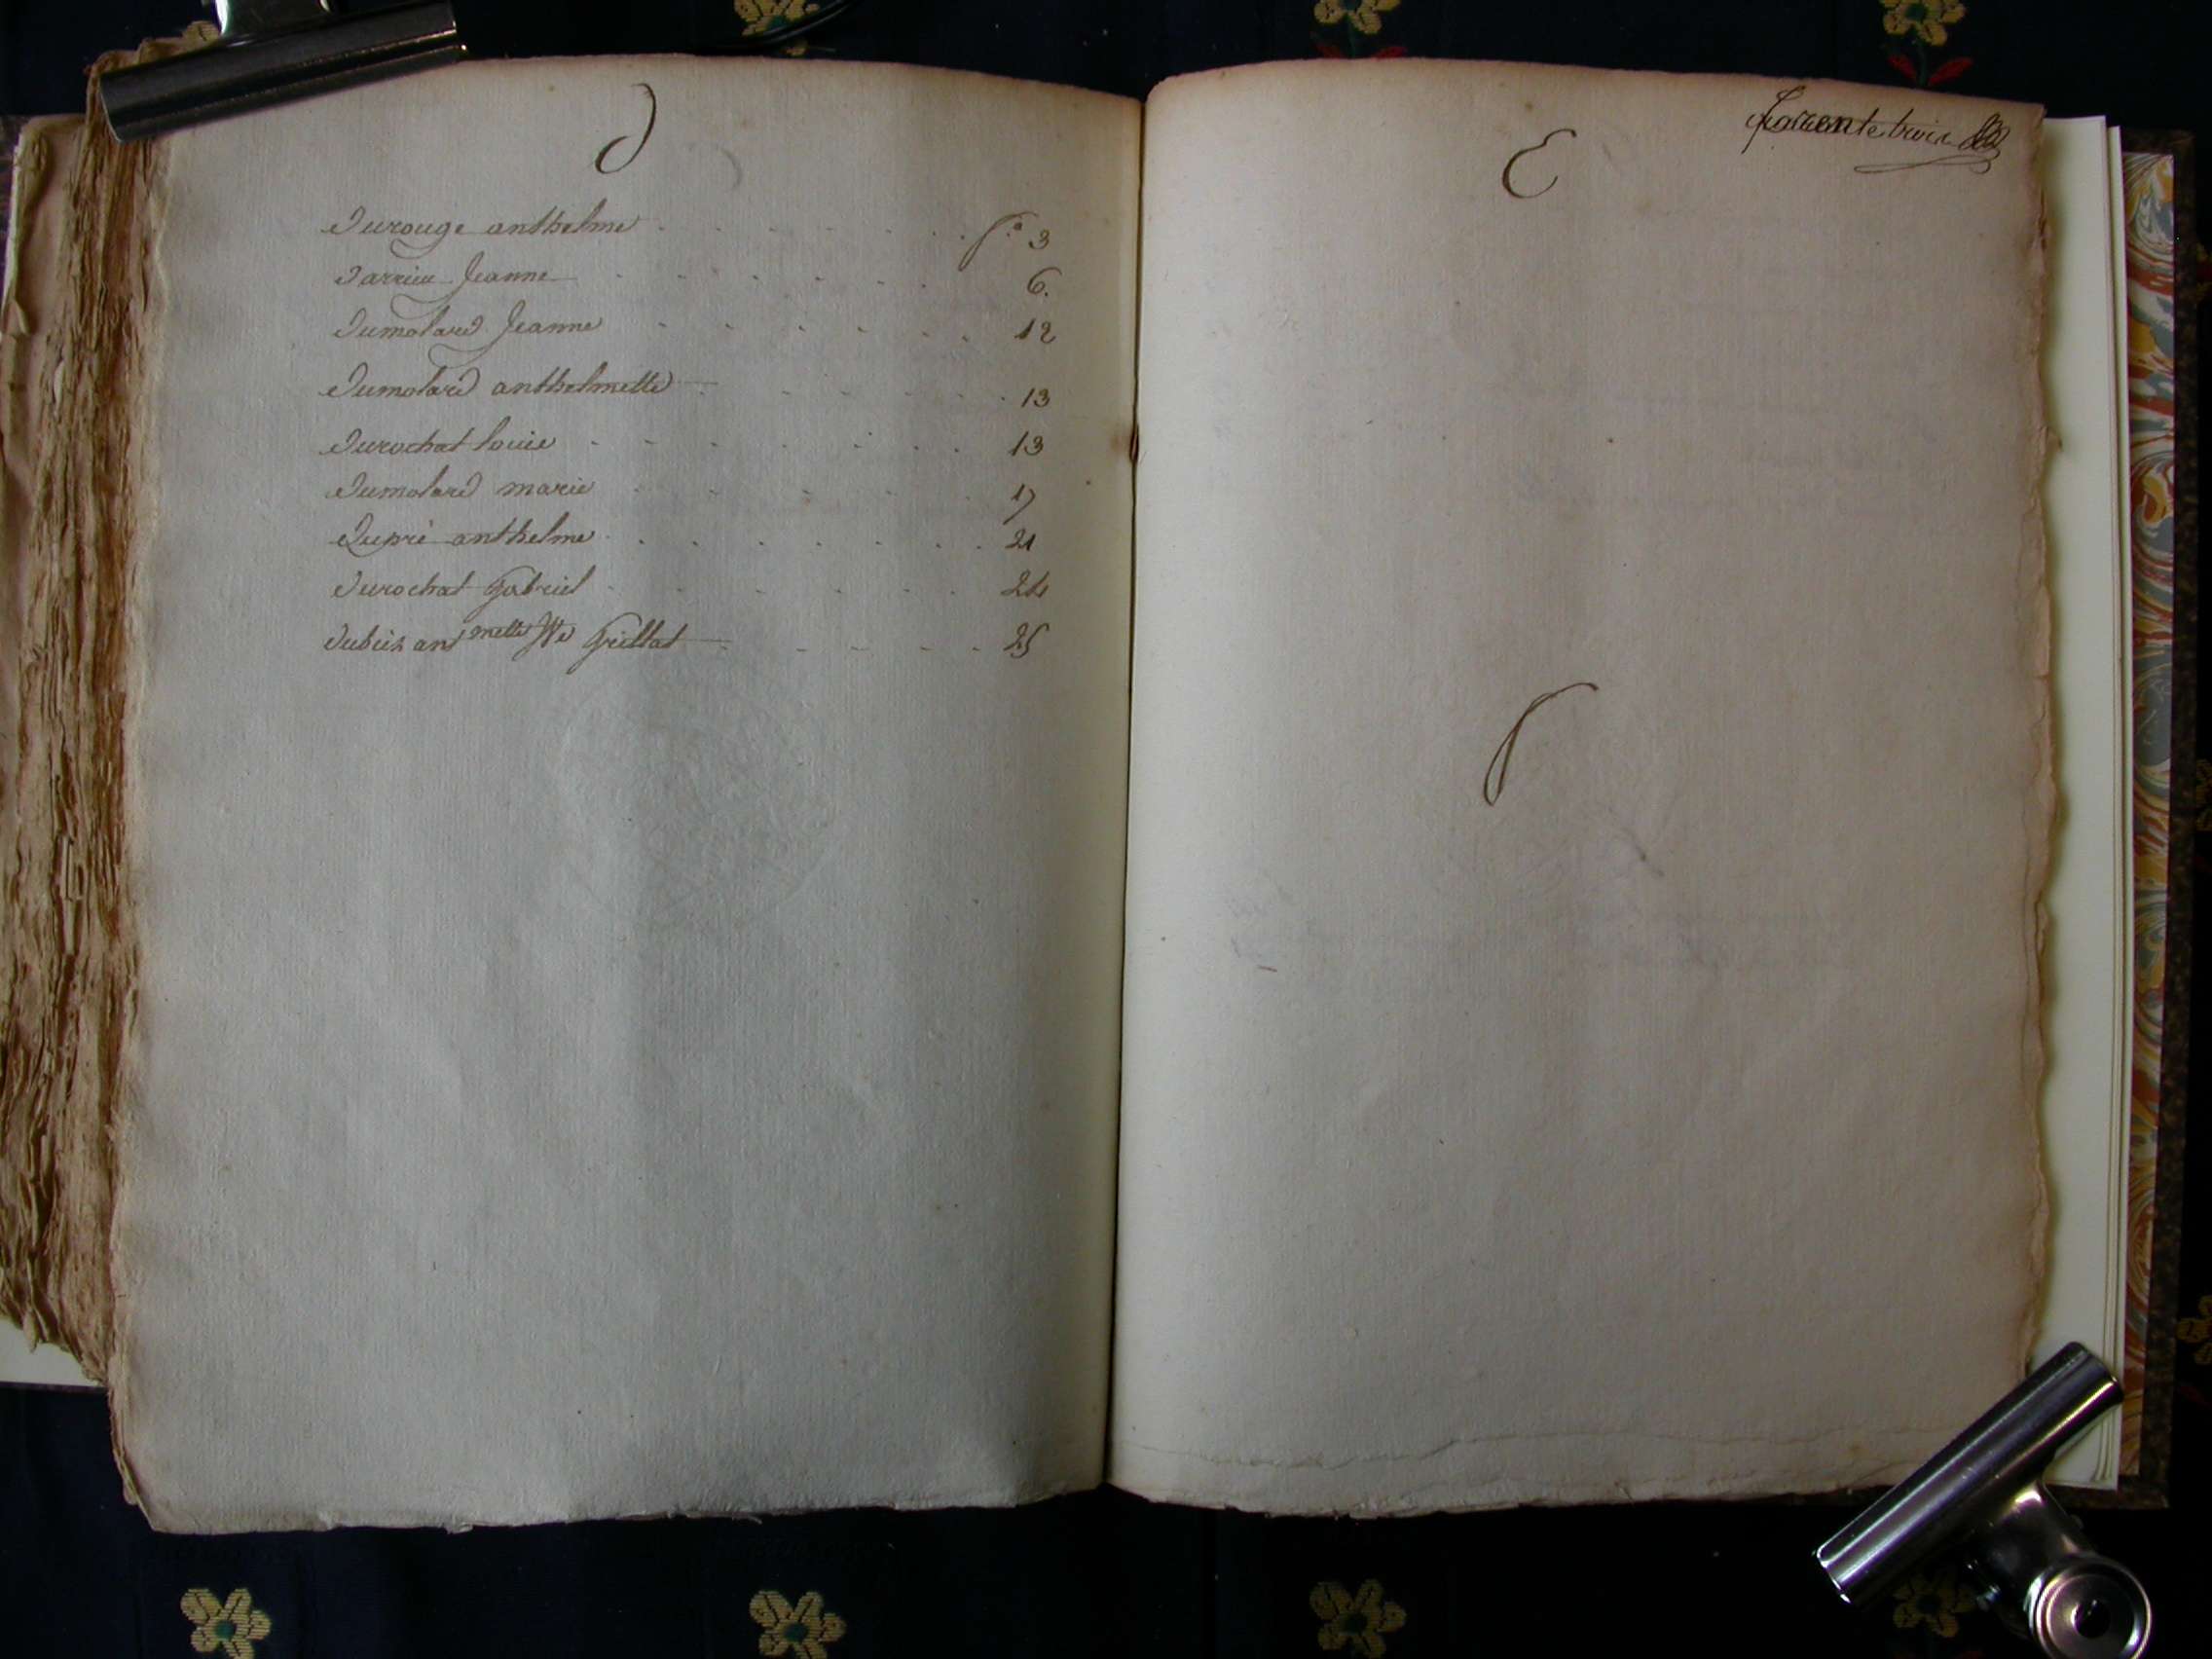 D
Durouge anthelme f.o 3
Darrieu Jeanne 6.
Dumolard Jeanne 12
Dumolard anthelmette 13
Durochat louise 13
Dumolard marie 17
Dupré anthelme 21
Durochat Gabriel 24
Dubuis antmette Ve Grillat 25
E
quarente trois